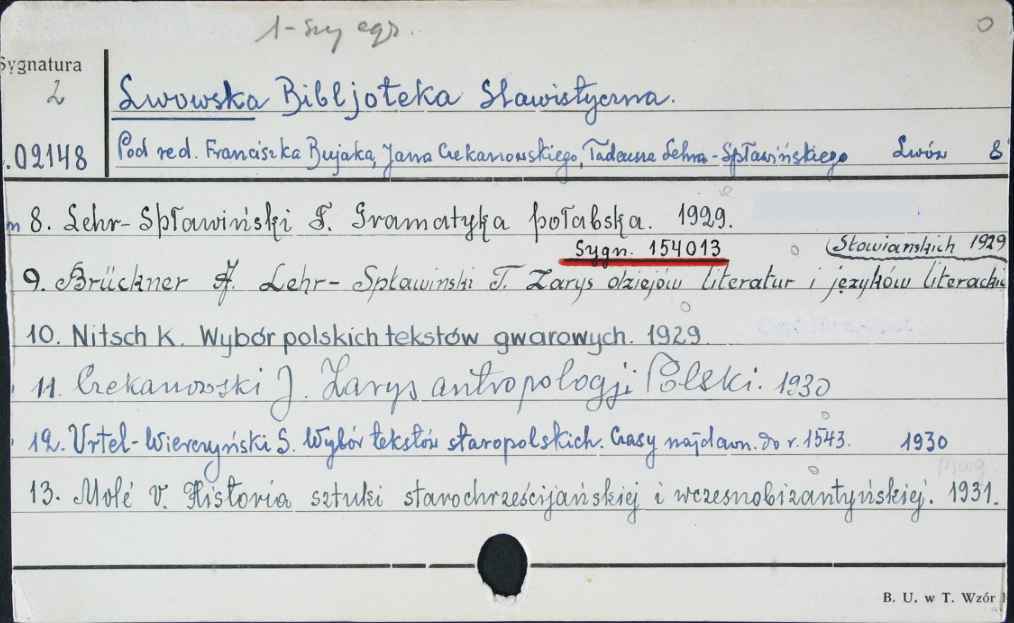 1-szy egz.
Sygnatura
2
02148
Lwowska Bibljoteka Slawistyczna.
Pod red. Franciszka Bujaka, Jana Czekanowskiego, Tadeusza Lehra-Spławińskiego Lwów 8°
8. Lehr-Spławiński T. Gramatyka połabska. 1929.
Sygn. 154013
(Słowiańskich 1929
9. Brückner A. Lehr-Spławiński T. Zarys dziejów literatur i języków literackich
10. Nitsch K. Wybór polskich tekstów gwarowych. 1929.
11. Czekanowski J. Zarys antropologji Polski. 1930
12. Vrtel-Wierczyński S. Wybór tekstów staropolskich. Czasy najdawn. do r. 1543. 1930
13. Molé V. Historia sztuki starochrześcijańskiej i wczesnobizantyńskiej. 1931.
B. U. w T. Wzór